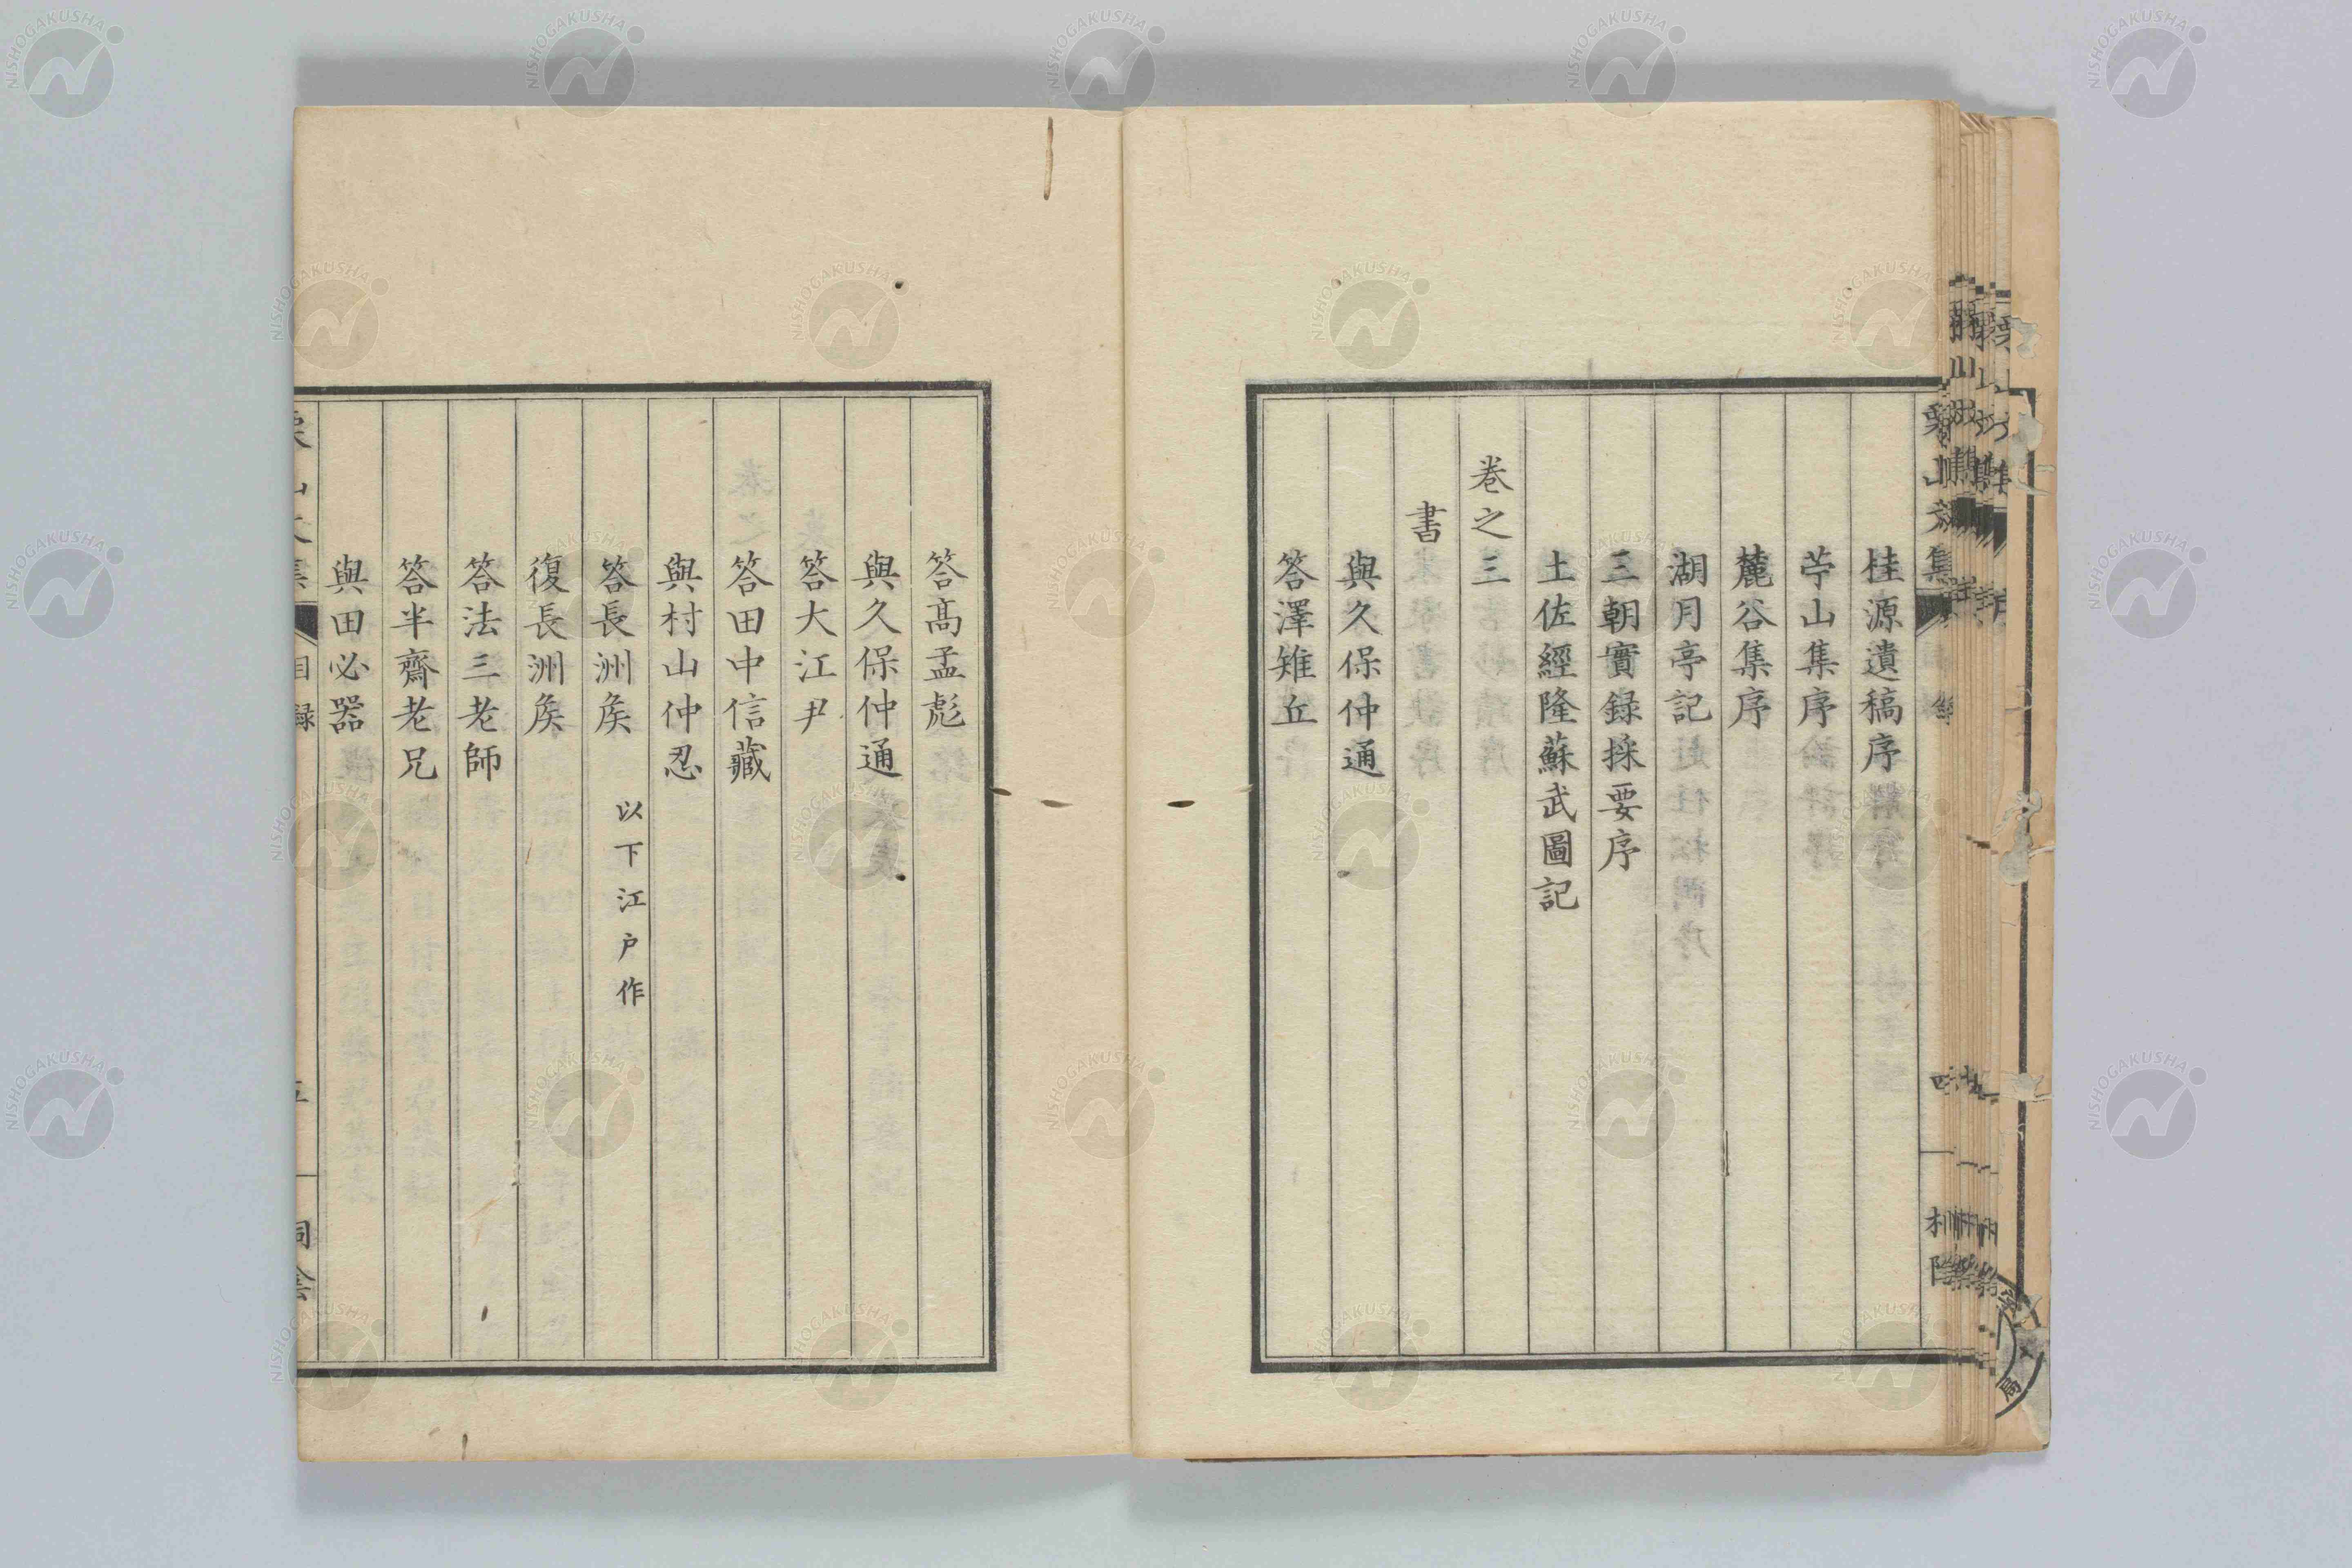 桂源遺稿序
苧山集序
麓谷集序
湖月亭記
三朝實録採要序
土佐經隆蘇武圖記
卷之三
書
與久保仲通
答澤雉丘
答高孟彪
與久保仲通
答大江尹
答田中信藏
與村山仲忍
答長洲矦 以下江户作
復長洲矦
答法三老師
答半齋老兄
與田必器
目録
NISHOGAKUSHA